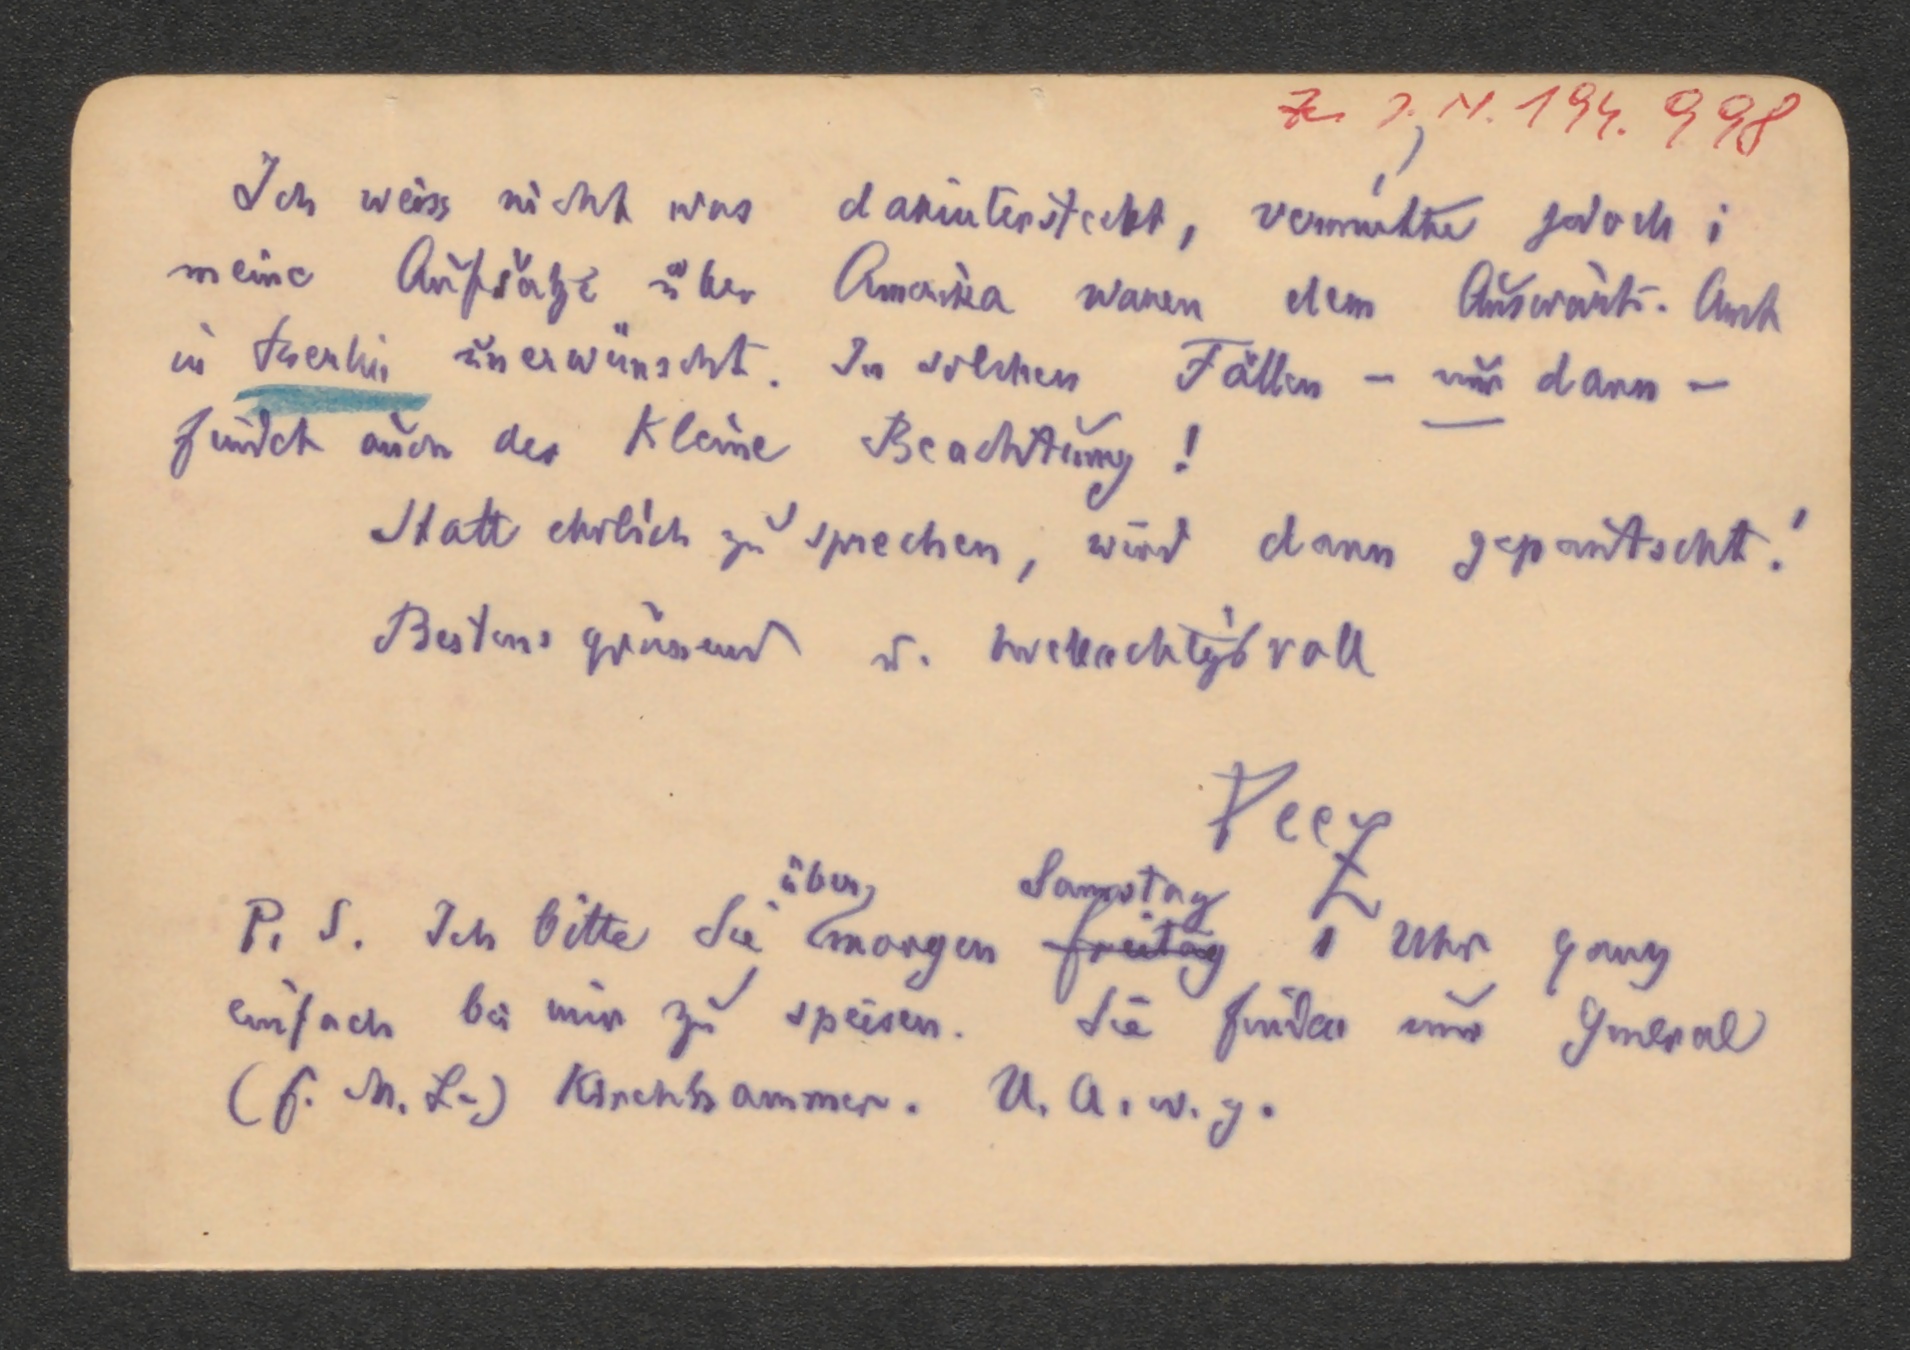 Zu I. N. 194.998
Ich weiss nicht was dahintersteckt, vermuthe jedoch:
meine Aufsätze über Amerika waren dem Auswärt. Amt
in Berlin unerwünscht. In solchen Fällen – nur dann –
findet auch der Kleine Beachtung!
Statt ehrlich zu sprechen, wird dann gepantscht!
Bestens grüssend u. hochachtgsvoll
Peez
über Samstag
P. S. Ich bitte Sie morgen Freitag 1 Uhr ganz
einfach bei mir zu speisen. Sie finden nur General
(F. M. L.) Kirchhammer. U. A. w. g.